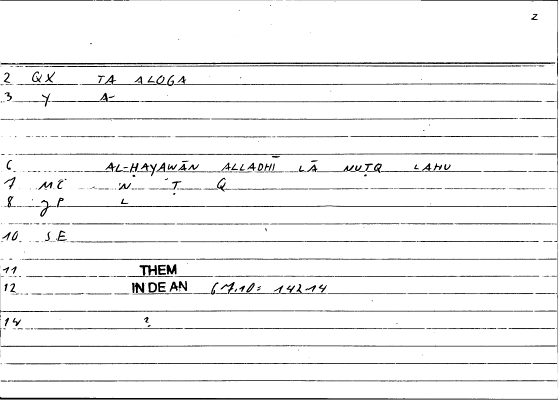 2
2 QX TA ALOGA
3 Y A-
6 AL-ḤAYAWĀN ALLADHĪ LĀ NUṬQ LAHU
7 MC N Ṭ Q
8 P L
10 SE
11 THEM
12 IN DE AN 6 17.10: 142 14
14 2